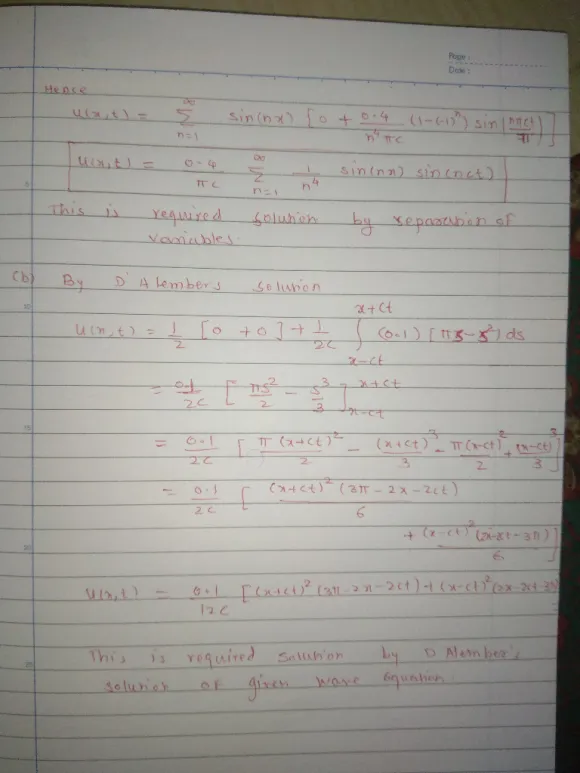 Page :
Date :
Hence
u(x,t) = ∞ Σ n=1 sin(nx) [0 + 0.4/n⁴πc (1-(-1)ⁿ) sin(nπct/π)]
u(x,t) = 0.4/πc ∞ Σ n=1 1/n⁴ sin(nx) sin(nct)
This is required solution by separation of
variables.
(b) By D'Alembers solution
u(x,t) = 1/2 [0 + 0] + 1/2c ∫ x-ct x+ct (0.1) [πs - s²) ds
= 0.1/2c [πs²/2 - s³/3] x+ct x-ct
= 0.1/2c [π(x+ct)²/2 - (x+ct)³/3 - π(x-ct)²/2 + (x-ct)³/3]
= 0.1/2c [(x+ct)² (3π - 2x - 2ct)/6
+ (x-ct)² (2x-2ct-3π)/6]
u(x,t) = 0.1/12c [(x+ct)² (3π-2x-2ct) + (x-ct)² (2x-2ct
This is required solution by D Alember's
solution of given wave equation.